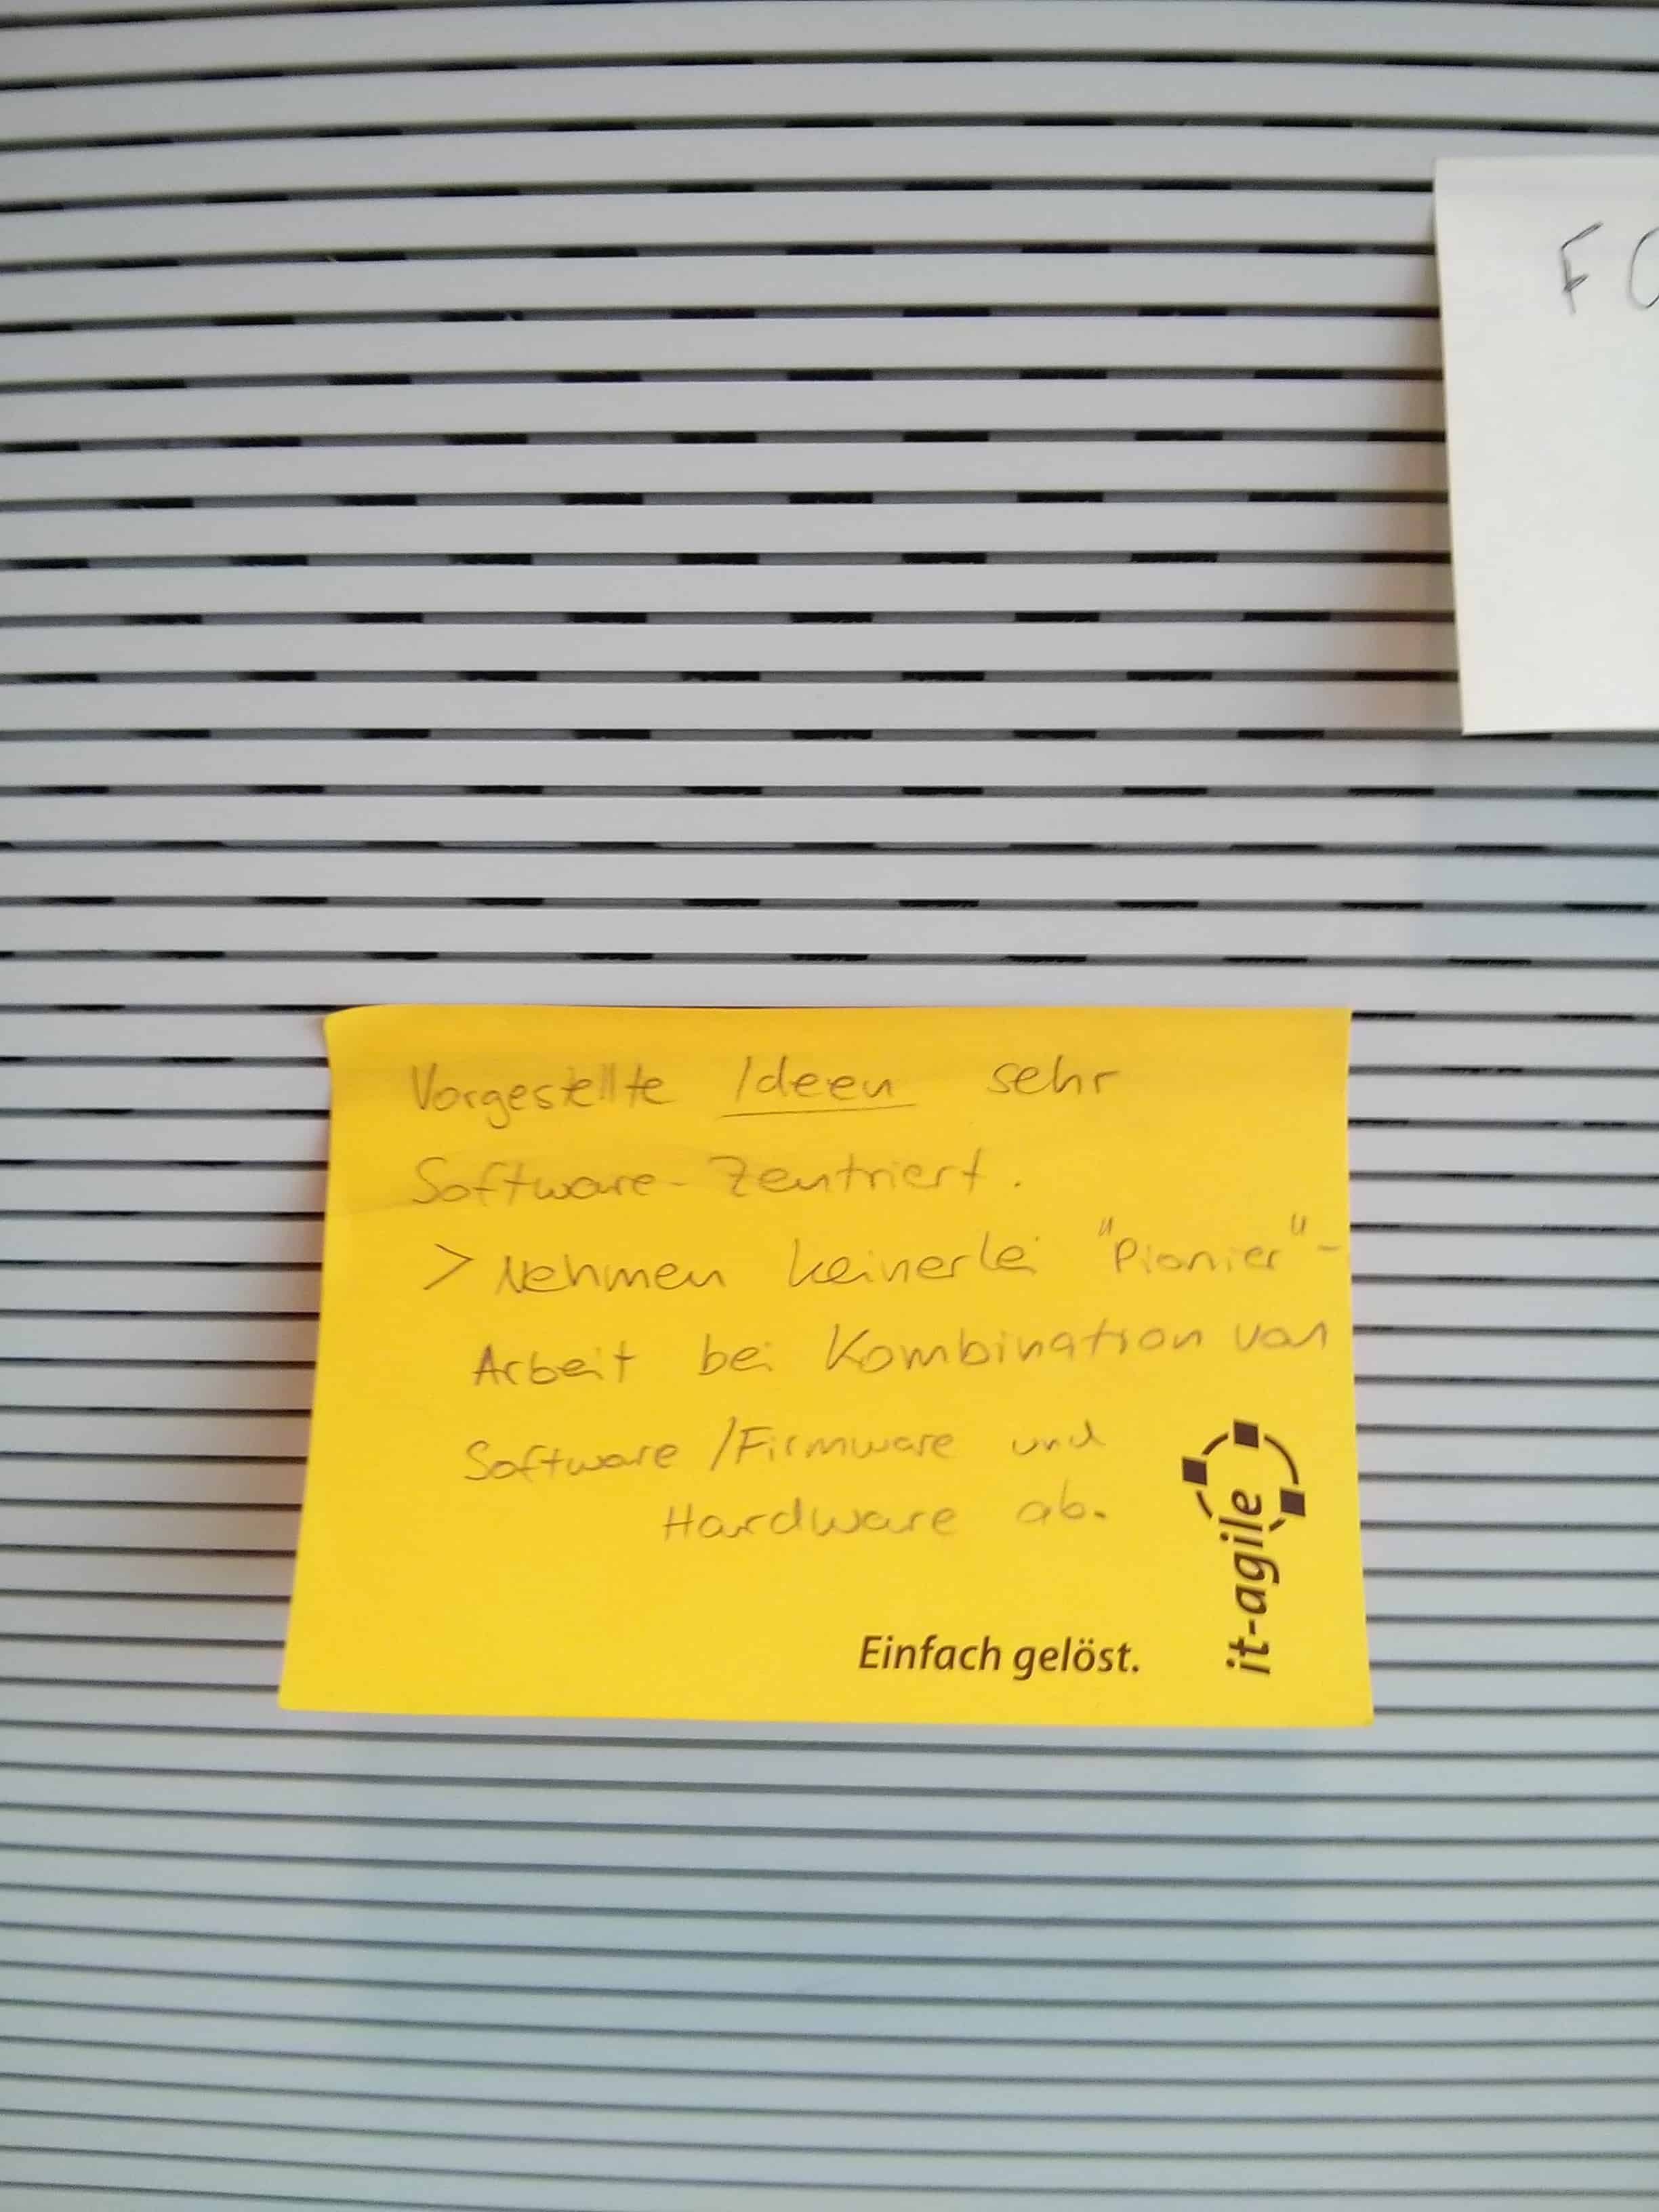 F
Vorgestellte Ideen sehr
Software-Zentriert.
> Nehmen keinerlei "Pionier"-
Arbeit bei Kombination von
Software/Firmware und
Hardware ab.
Einfach gelöst.
it-agile